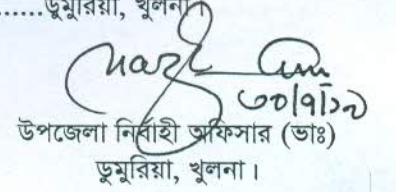 ......ডুমুরিয়া, খুলনা।
উপজেলা নির্বাহী অফিসার (ভাঃ)
ডুমুরিয়া, খুলনা।